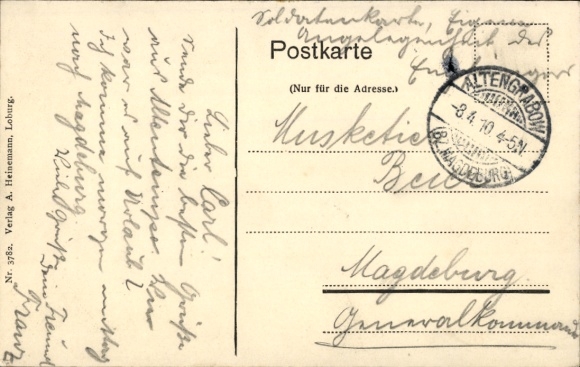 Soldatenkarte, Eigene
Angelegenheit des
Postkarte
(Nur für die Adresse.)
ALTENGRABOW
-8.4.10. 4-5N.
BZ. MAGDEBURG
Musketier
Magdeburg
Generalkommando
Lieber Carl!
Sende dir die besten Grüße
aus
war es auf Urlaub?
Ich komme morgen mittag
nach Magdeburg.
Viele Grüße
Dein Freund
Franz
Nr. 3782. Verlag A. Heinemann, Loburg.